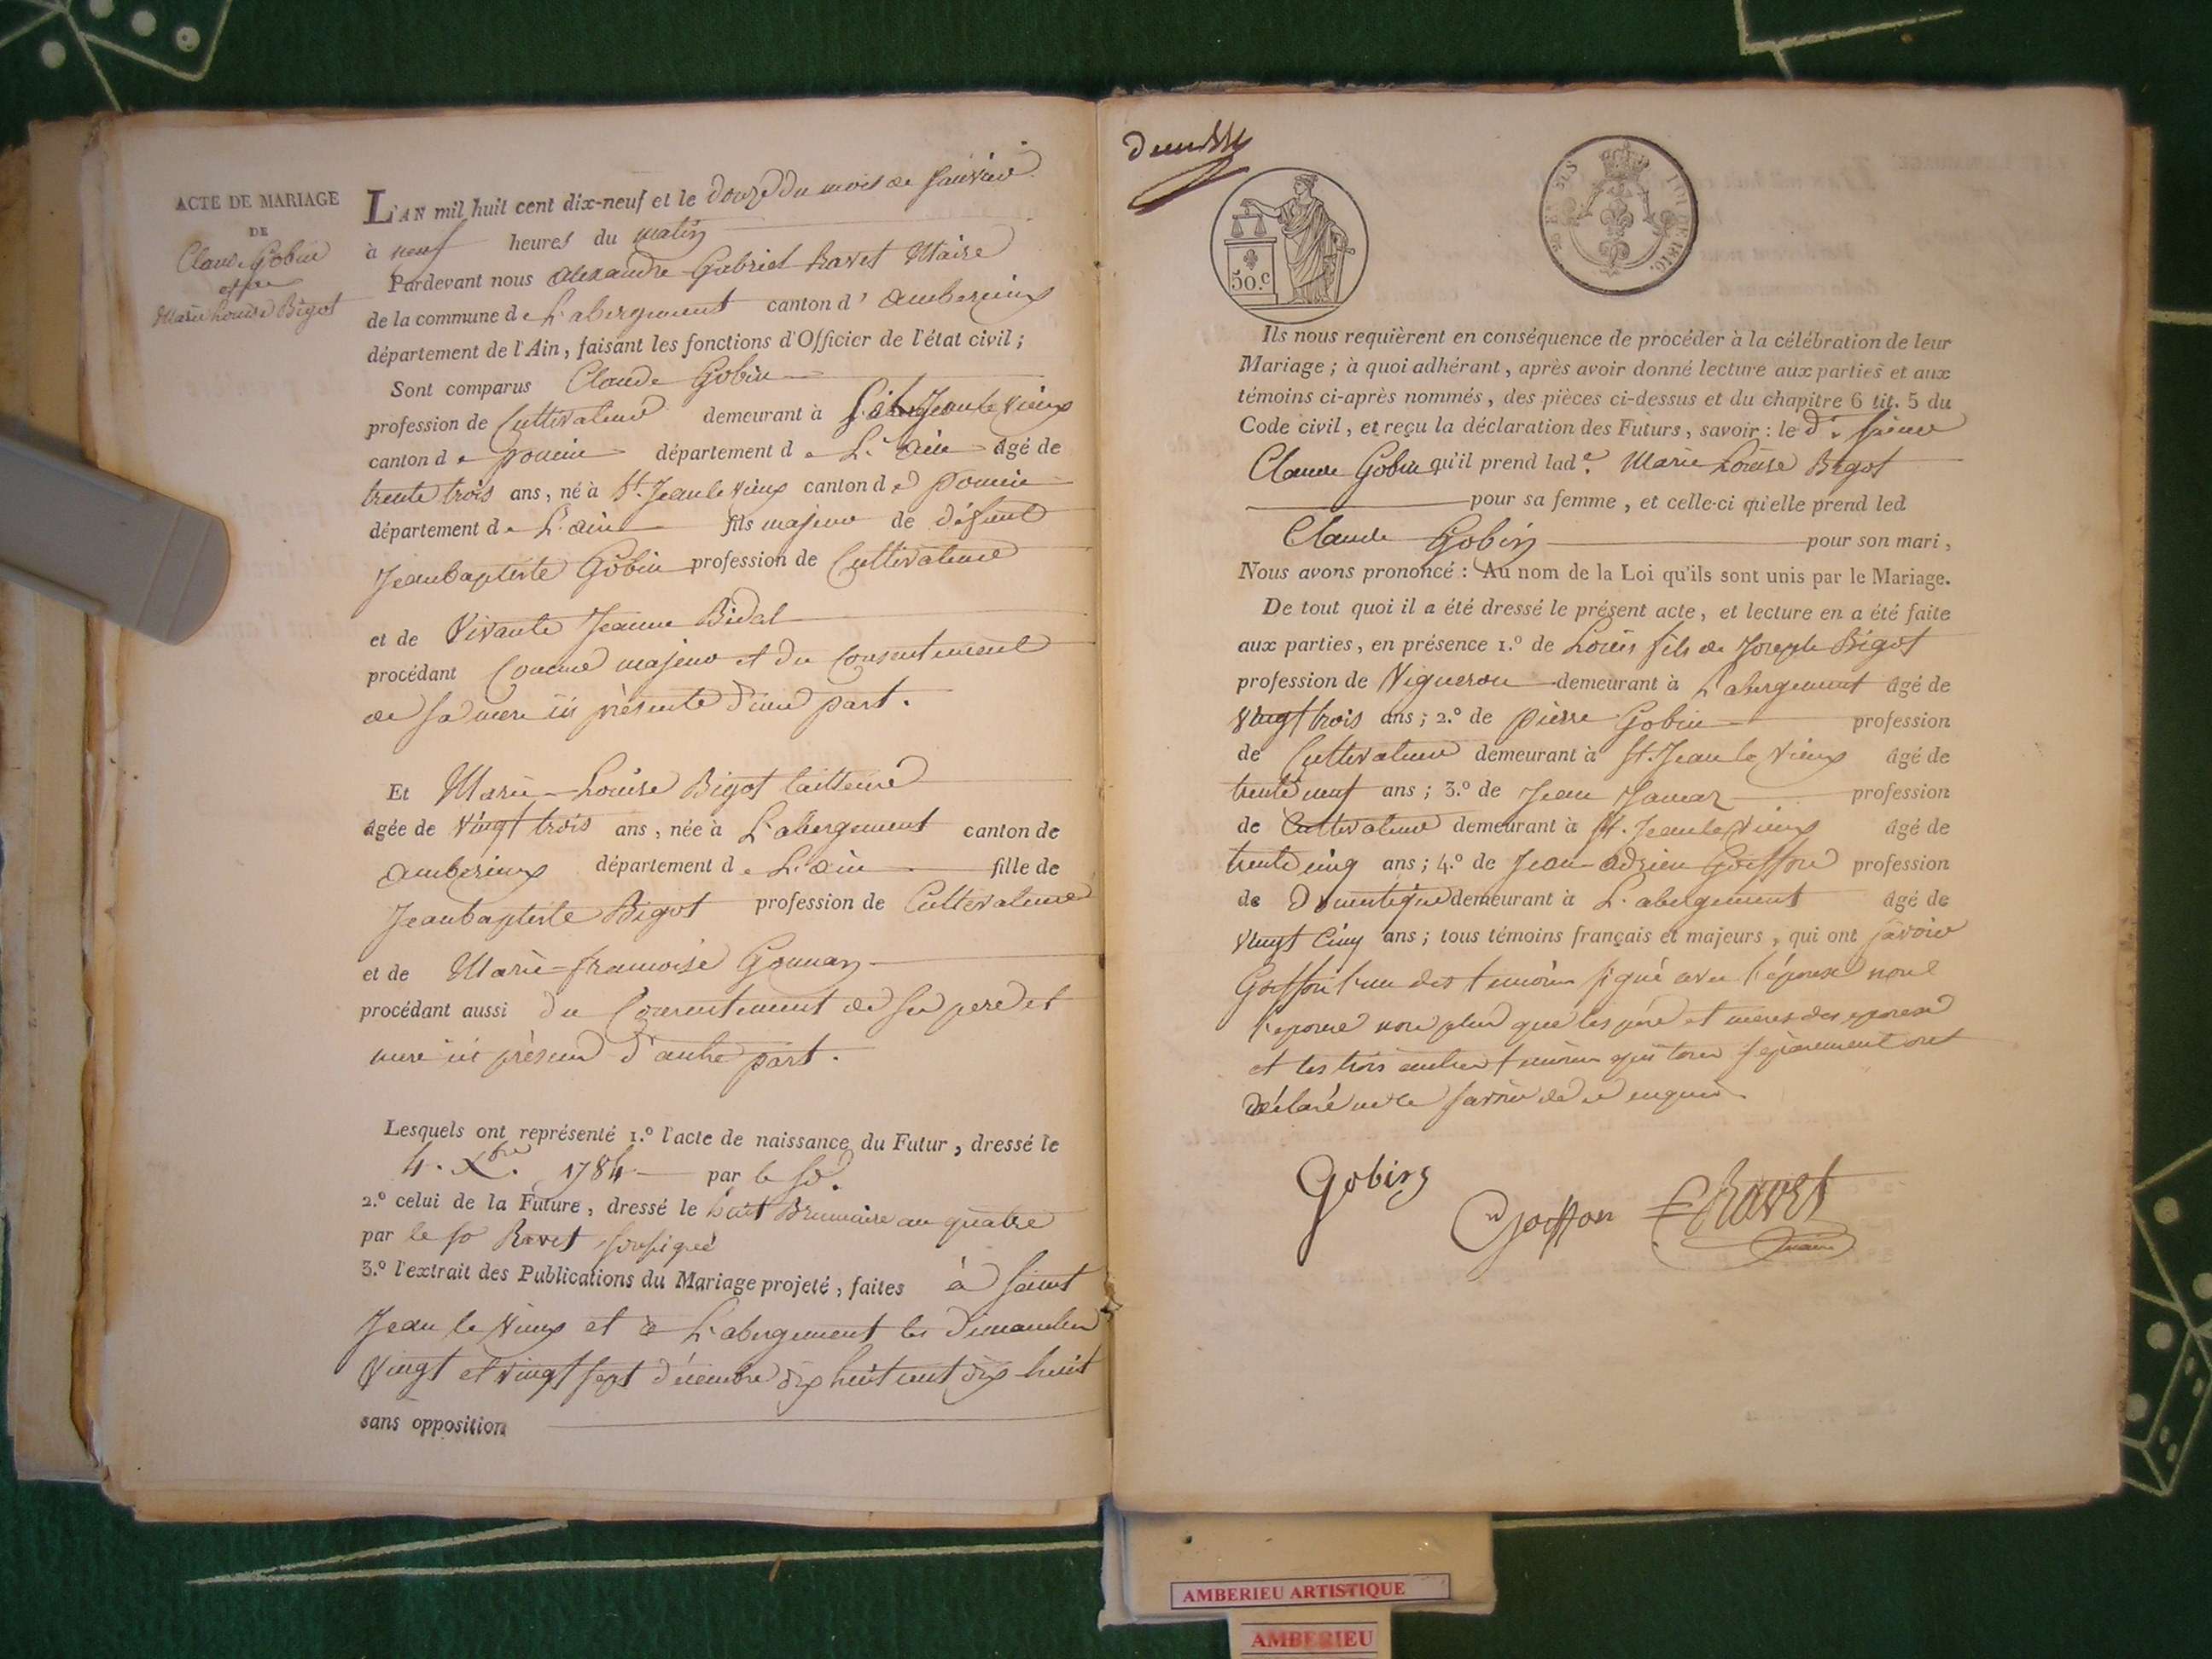 ACTE DE MARIAGE
DE
Claude Gobin
et de
Marie Louise Bigot
L'AN mil huit cent dix-neuf et le douze du mois de Janvier
à neuf heures du matin
Pardevant nous Alexandre Gabriel Ravet Maire
de la commune de L'abergement canton d' Amberieux
département de l'Ain, faisant les fonctions d'Officier de l'état civil;
Sont comparus Claude Gobin
profession de Cultivateur demeurant à St Jean le Vieux
canton de poncin département de L'ain âgé de
trente trois ans, né à St. Jean le Vieux canton de poncin
département de L'ain fils majeur de défunt
Jeanbaptiste Gobin profession de Cultivateur
et de Vivante Jeanne Bidal
procédant Comme majeur et du Consentement
de sa mere ici présente d'une part.
Et Marie-Louise Bigot tailleuse
âgée de Vingt trois ans, née à L'abergement canton de
Amberieux département de L'ain fille de
Jeanbaptiste Bigot profession de Cultivateur
et de Marie-francoise
procédant aussi du Consentement de ses pere et
mere ici présens d'autre part.
Lesquels ont représenté 1.º l'acte de naissance du Futur, dressé le
4. Xbre. 1784 par le
2.º celui de la Future, dressé le huit Brumaire an quatre
par le sr Ravet soussigné
3.º l'extrait des Publications du Mariage projeté, faites à Saint
Jean le Vieux et à L'abergement les dimanches
Vingt et vingt sept décembre dix huit cent dix huit
sans opposition
50.c
LOI DE 1816.
Ils nous requièrent en conséquence de procéder à la célébration de leur
Mariage; à quoi adhérant, après avoir donné lecture aux parties et aux
témoins ci-après nommés, des pièces ci-dessus et du chapitre 6 tit. 5 du
Code civil, et reçu la déclaration des Futurs, savoir: le d.
Claude Gobin qu'il prend lad.e Marie Louise Bigot
pour sa femme, et celle-ci qu'elle prend led
Claude Gobin pour son mari,
Nous avons prononcé: Au nom de la Loi qu'ils sont unis par le Mariage.
De tout quoi il a été dressé le présent acte, et lecture en a été faite
aux parties, en présence 1.º de Louis fils de Joseph Bigot
profession de Vigneron demeurant à L'abergement âgé de
Vingt trois ans; 2.º de pierre Gobin profession
de Cultivateur demeurant à St. Jean le Vieux âgé de
trente neuf ans; 3.º de Jean profession
de Cultivateur demeurant à St. Jean le Vieux âgé de
trente cinq ans; 4.º de Jean-adrien Goiffon profession
de Domestique demeurant à L'abergement âgé de
Vingt Cinq ans; tous témoins français et majeurs, qui ont savoir
Goiffon l'un des temoins signé avec l'époux non
l'epouse non plus que les père et meres des epoux
et les trois autres temoins qui tous séparement ont
déclaré ne le savoir de ce enquis
Gobin
Goiffon
Ravet
maire
AMBERIEU ARTISTIQUE
AMBERIEU